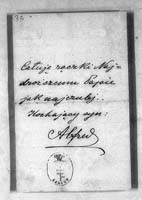 Całuję rączki Naj-
droższemu Tapcie
jak najczulej..
Kochający syn:
Alfred